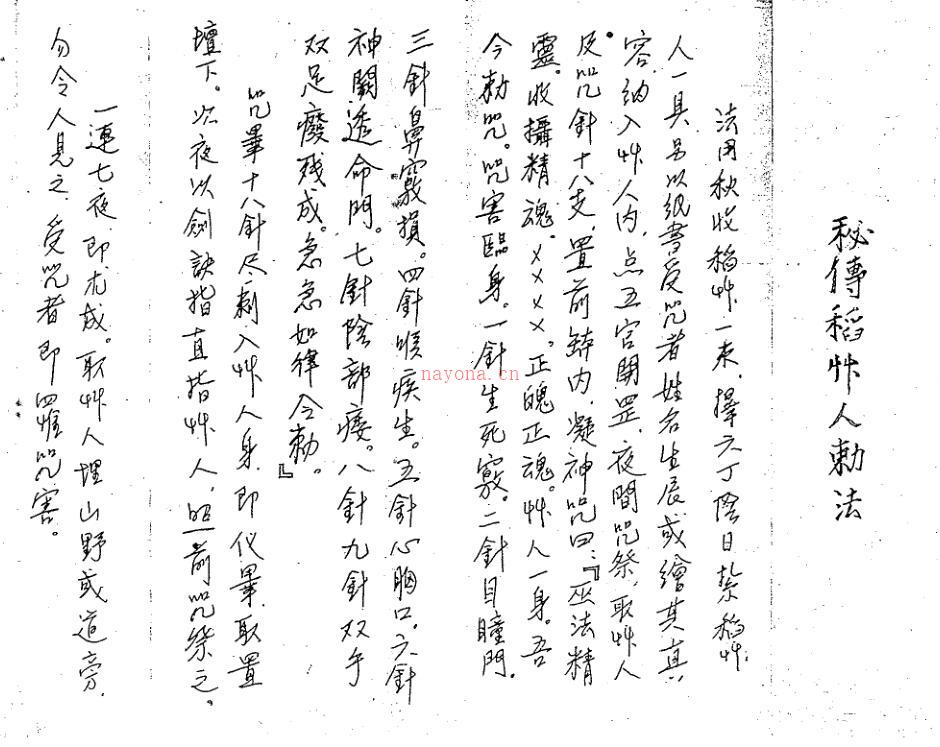 秘傳稻艸人勅法
法用秋收稻艸一束，擇六丁陰日紮稻艸
人一具另以紙書受咒者姓名生辰或繪其真
容，納入艸人內，点五官開罡，夜間咒祭，取艸人
及咒針十八支，置前缽內，凝神咒曰：『巫法精
靈。收攝精魂。××××。正魄正魂。艸人一身。吾
今勅咒。咒害臨身。一針生死竅。二針目瞳門。
三針鼻竅損。四針喉疾生。五針心胸口。六針
神闕透命門。七針陰部痿。八針九針双手
双足癈残成。急急如律令勅。』
咒畢十八針尽刺入艸人身，即仪畢，取置
壇下。次夜以劍訣指直指艸人，照前咒祭之。
一連七夜，即尤成。取艸人埋山野或道旁，
勿令人見之，受咒者即罹咒害。
nayona.cn